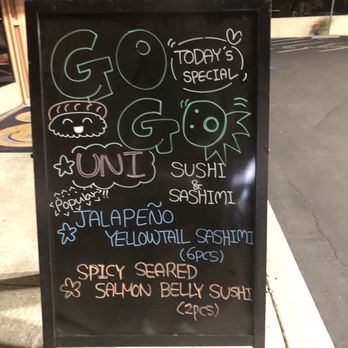 GO
TODAY'S
SPECIAL
GO
UNI
SUSHI
&
SASHIMI
Popular!!
JALAPEÑO
YELLOWTAIL SASHIMI
(6pcs)
SPICY SEARED
SALMON BELLY SUSHI
(2pcs)